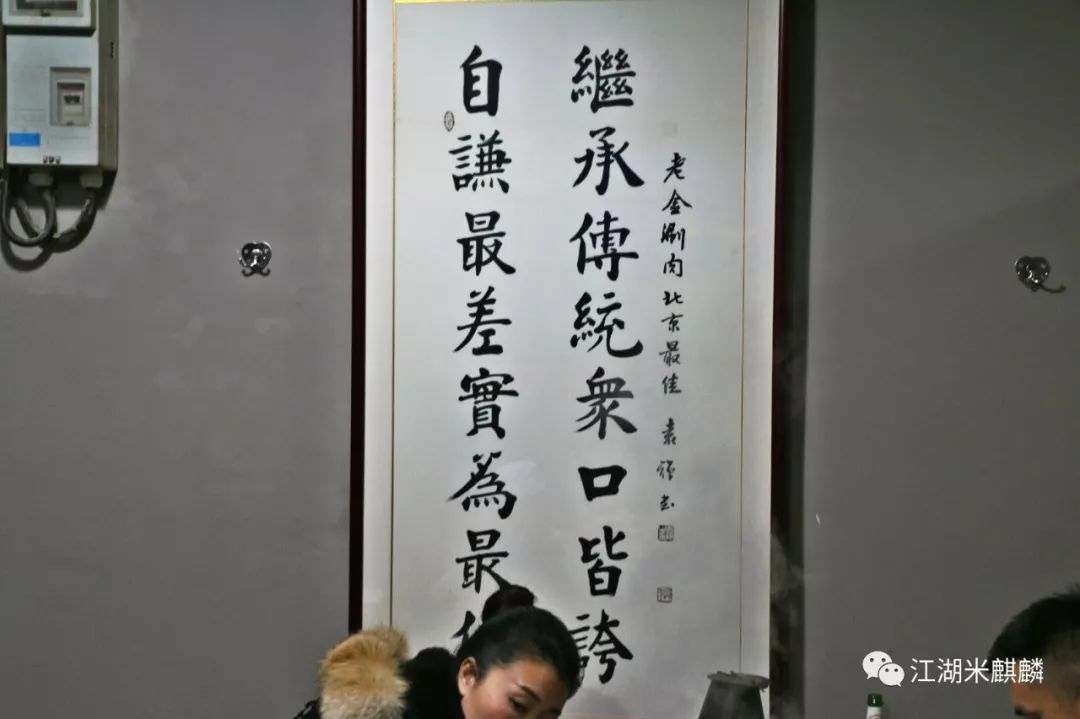 自謙最差實為最
繼承傳統衆口皆誇
老金涮肉北京最佳 袁书
江湖米麒麟